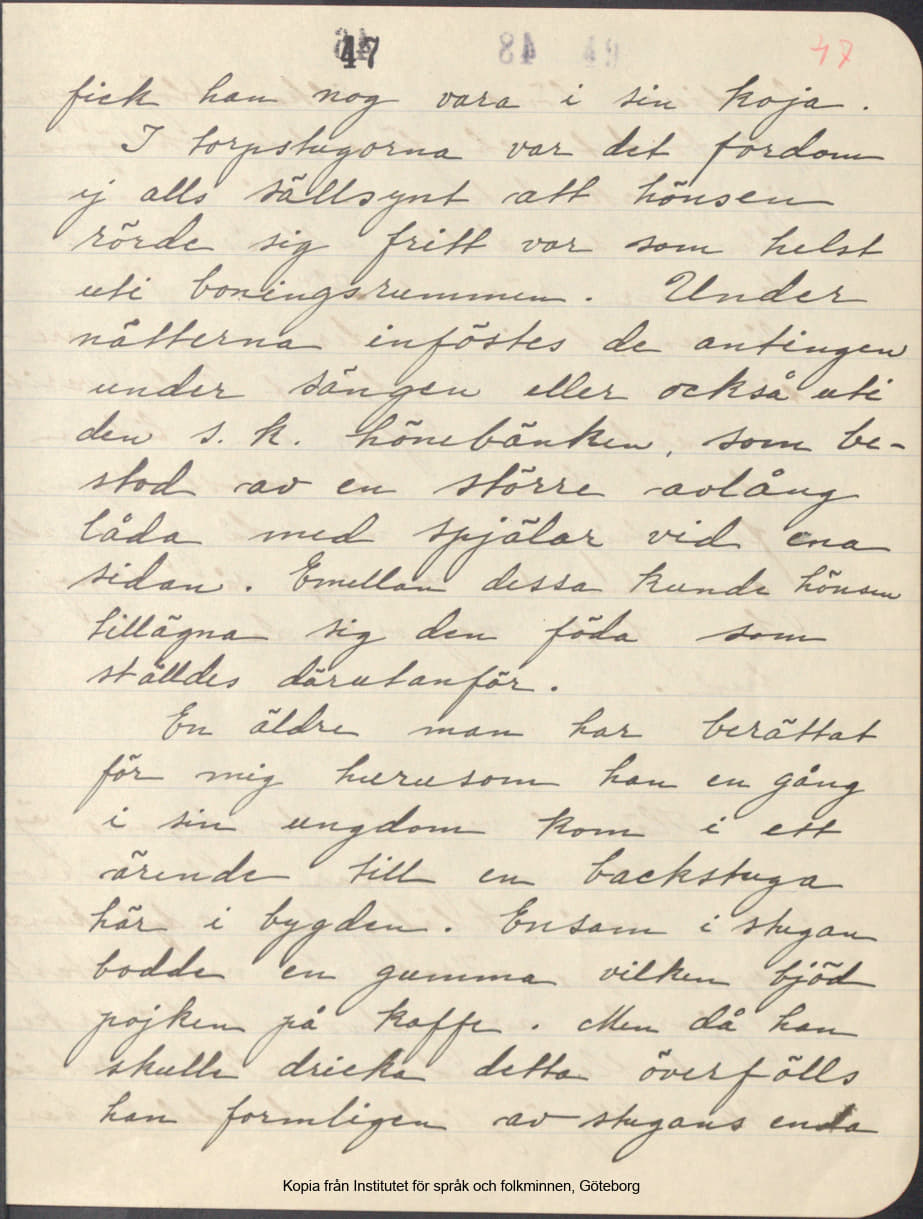 47 48 49 47
fick han nog vara i sin koja.
I torpstugorna var det fordom
ej alls sällsynt att hönsen
rörde sig fritt var som helst
uti boningsrummen. Under
nätterna inföstes de antingen
under sängen eller också uti
den s. k. hönebänken, som be-
stod av en större avlång
låda med spjälar vid ena
sidan. Emellan dessa kunde hönsen
tillägna sig den föda som
ställdes därutanför.
En äldre man har berättat
för mig hurusom han en gång
i sin ungdom kom i ett
ärende till en backstuga
här i bygden. Ensam i stugan
bodde en gumma vilken bjöd
pojken på kaffe. Men då han
skulle dricka detta överfölls
han formligen av stugans enda
Kopia från Institutet för språk och folkminnen, Göteborg